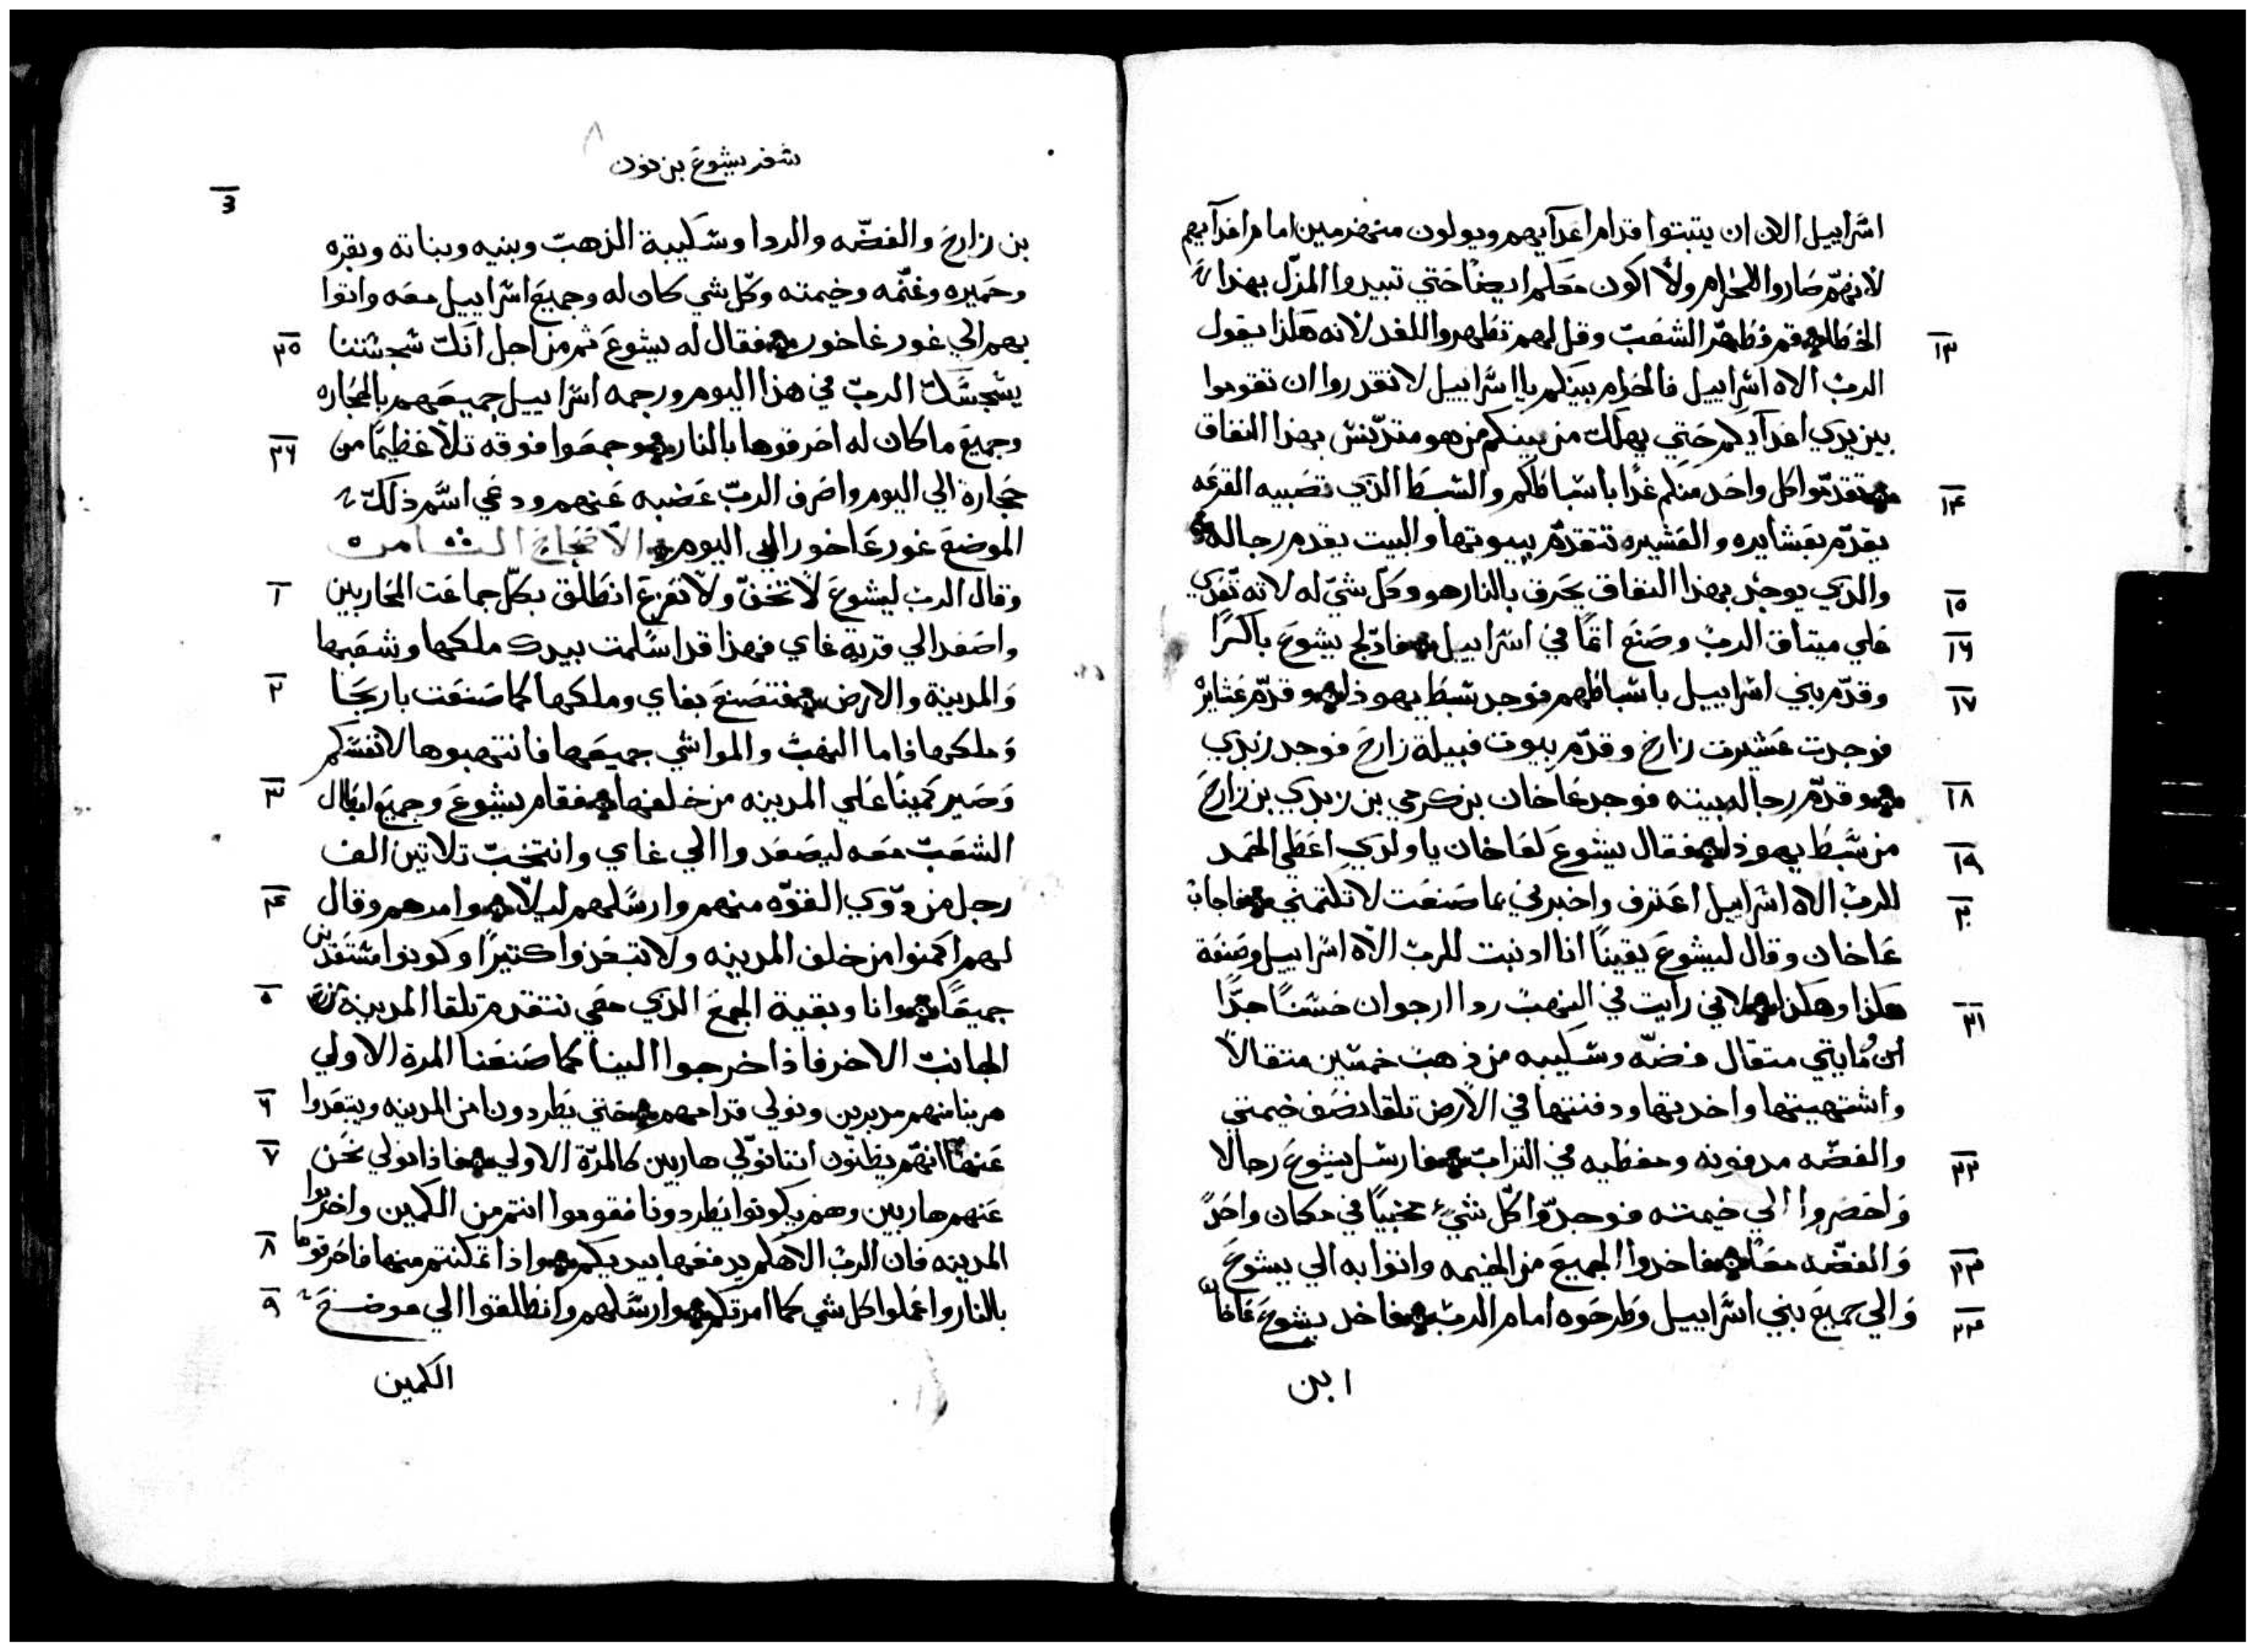 اسراييل الان ان يتبتوا قدام اعدآيهم ويولون منهزمين امام اعدآيهم
لانهم صاروا للحرام ولا اكون معكم ايضا حتي تبيدوا المزل بهذا
الخطا قم فطهر الشعب وقل لهم تطهروا للغد لانه هكذا يقول
١٣
الرب الاه اسراييل فالحرام بينكم يا اسراييل لا تقدروا ان تقوموا
بين يدي اعدآيكم حتي يهلك من بينكم من هو متدنس بهذا النفاق
تقدموا كل واحد منكم غدا باشباطكم والشبط الذي تصبيه القرعه
١٤
يقدم بعشايره والعشيره تتقدم ببيوتها والبيت يقدم رجاله
والذي يوجد بهذا النفاق يحرق بالنار هو وكل شي له لانه تعدي
١٥
علي ميتاق الرب وصنع اتما في اسراييل فادلج يشوع باكرا
١٦
وقدم بني اسراييل باشباطهم فوجد شبط يهوذا وقدم عشاير
١٧
فوجدت عشيرت زارح وقدم بيوت قبيلة زارح فوجد زبدي
وقدم رجال بيته فوجد عاخان بن كرمي بن زبدي بن زارح
١٨
من شبط يهوذا فقال يشوع لعاخان يا ولدي اعطي الحمد
١٩
للرب الاه اسراييل اعترف واخبرني بما صنعت لا تكتمني فاجاب
٢٠
عاخان وقال ليشوع يقينا انا ادنبت للرب الاه اسراييل وصنعة
هكذا وهكذا لاني رايت في النهب ردا ارجوان حسنا جدا
٢١
مايتي متقال فضه وشكيبه من ذهب خمسين متقالا
واشتهيتها واخدتها ودفنتها في الارض تلقا نصف خيمتي
والفضه مدفونه ومغطيه في التراب فارسل يشوع رجالا
٢٢
واحضروا الي خيمته فوجدوا كل شيء مخبيا في مكان واحد
والفضه معا فاخدوا الجميع من الخيمه واتوا به الي يشوع
٢٣
والي جميع بني اسراييل وطرحوه امام الرب فاخد يشوع عاخان
٢٤
ابن
سفر يشوع بن نون
٨
بن زارح والفضه والردا وشكيبة الذهب وبنيه وبناته وبقره
وحميره وغنمه وخيمته وكل شي كان له وجميع اسراييل معه واتوا
بهم الي غور عاخور فقال له يشوع ثم من اجل انك سجستنا
٢٥
يسجسك الرب في هذا اليوم ورجمه اسراييل جميعهم بالحجاره
وجميع ما كان له احرقوها بالنار وجمعوا فوقه تلا عظيما من
٢٦
حجارة الي اليوم واصرف الرب غضبه عنهم ودعي اسم ذلك
الموضع غور عاخور الي اليوم الاصحاح الثامن
وقال الرب ليشوع لا تخف ولا تفزع انطلق بكل جماعت المحاربين
١
واصعد الي قرية غاي فهذا قد اسلمت بيدك ملكها وشعبها
والمدينة والارض فتصنع بغاي وملكها كما صنعت باريحا
٢
وملكها فاما النهب والمواشي جميعها فانتهبوها لانفسكم
وصير كمينا علي المدينه من خلفها فقام يشوع وجميع ابطال
٣
الشعب معه ليصعدوا الي غاي وانتخب تلاتين الف
رجل من دوي القوه منهم وارسلهم ليلا وامرهم وقال
٤
لهم اكمنوا من خلف المدينه ولا تبعدوا كتيرا وكونوا مستعدين
جميعا وانا وبقية الجمع الذي معي نتقدم تلقا المدينة من
٥
الجانب الاخر فاذا خرجوا الينا كما صنعنا المرة الاولي
هربنا منهم مدبرين ونولي قدامهم حتي يطردونا من المدينه ويتبعدوا
٦
عنها انهم يظنون اننا نولي هاربين كالمرة الاولي فاذا نولي نحن
٧
عنهم هاربين وهم يكونوا يطردونا فقوموا انتم من الكمين واخربوا
المدينه فان الرب الاهكم يدفعها بيديكم واذا تمكنتم منها فاحرقوها
٨
بالنار واعملوا كل شي كما امرتكم وارسلهم وانطلقوا الي موضع
٩
الكمين